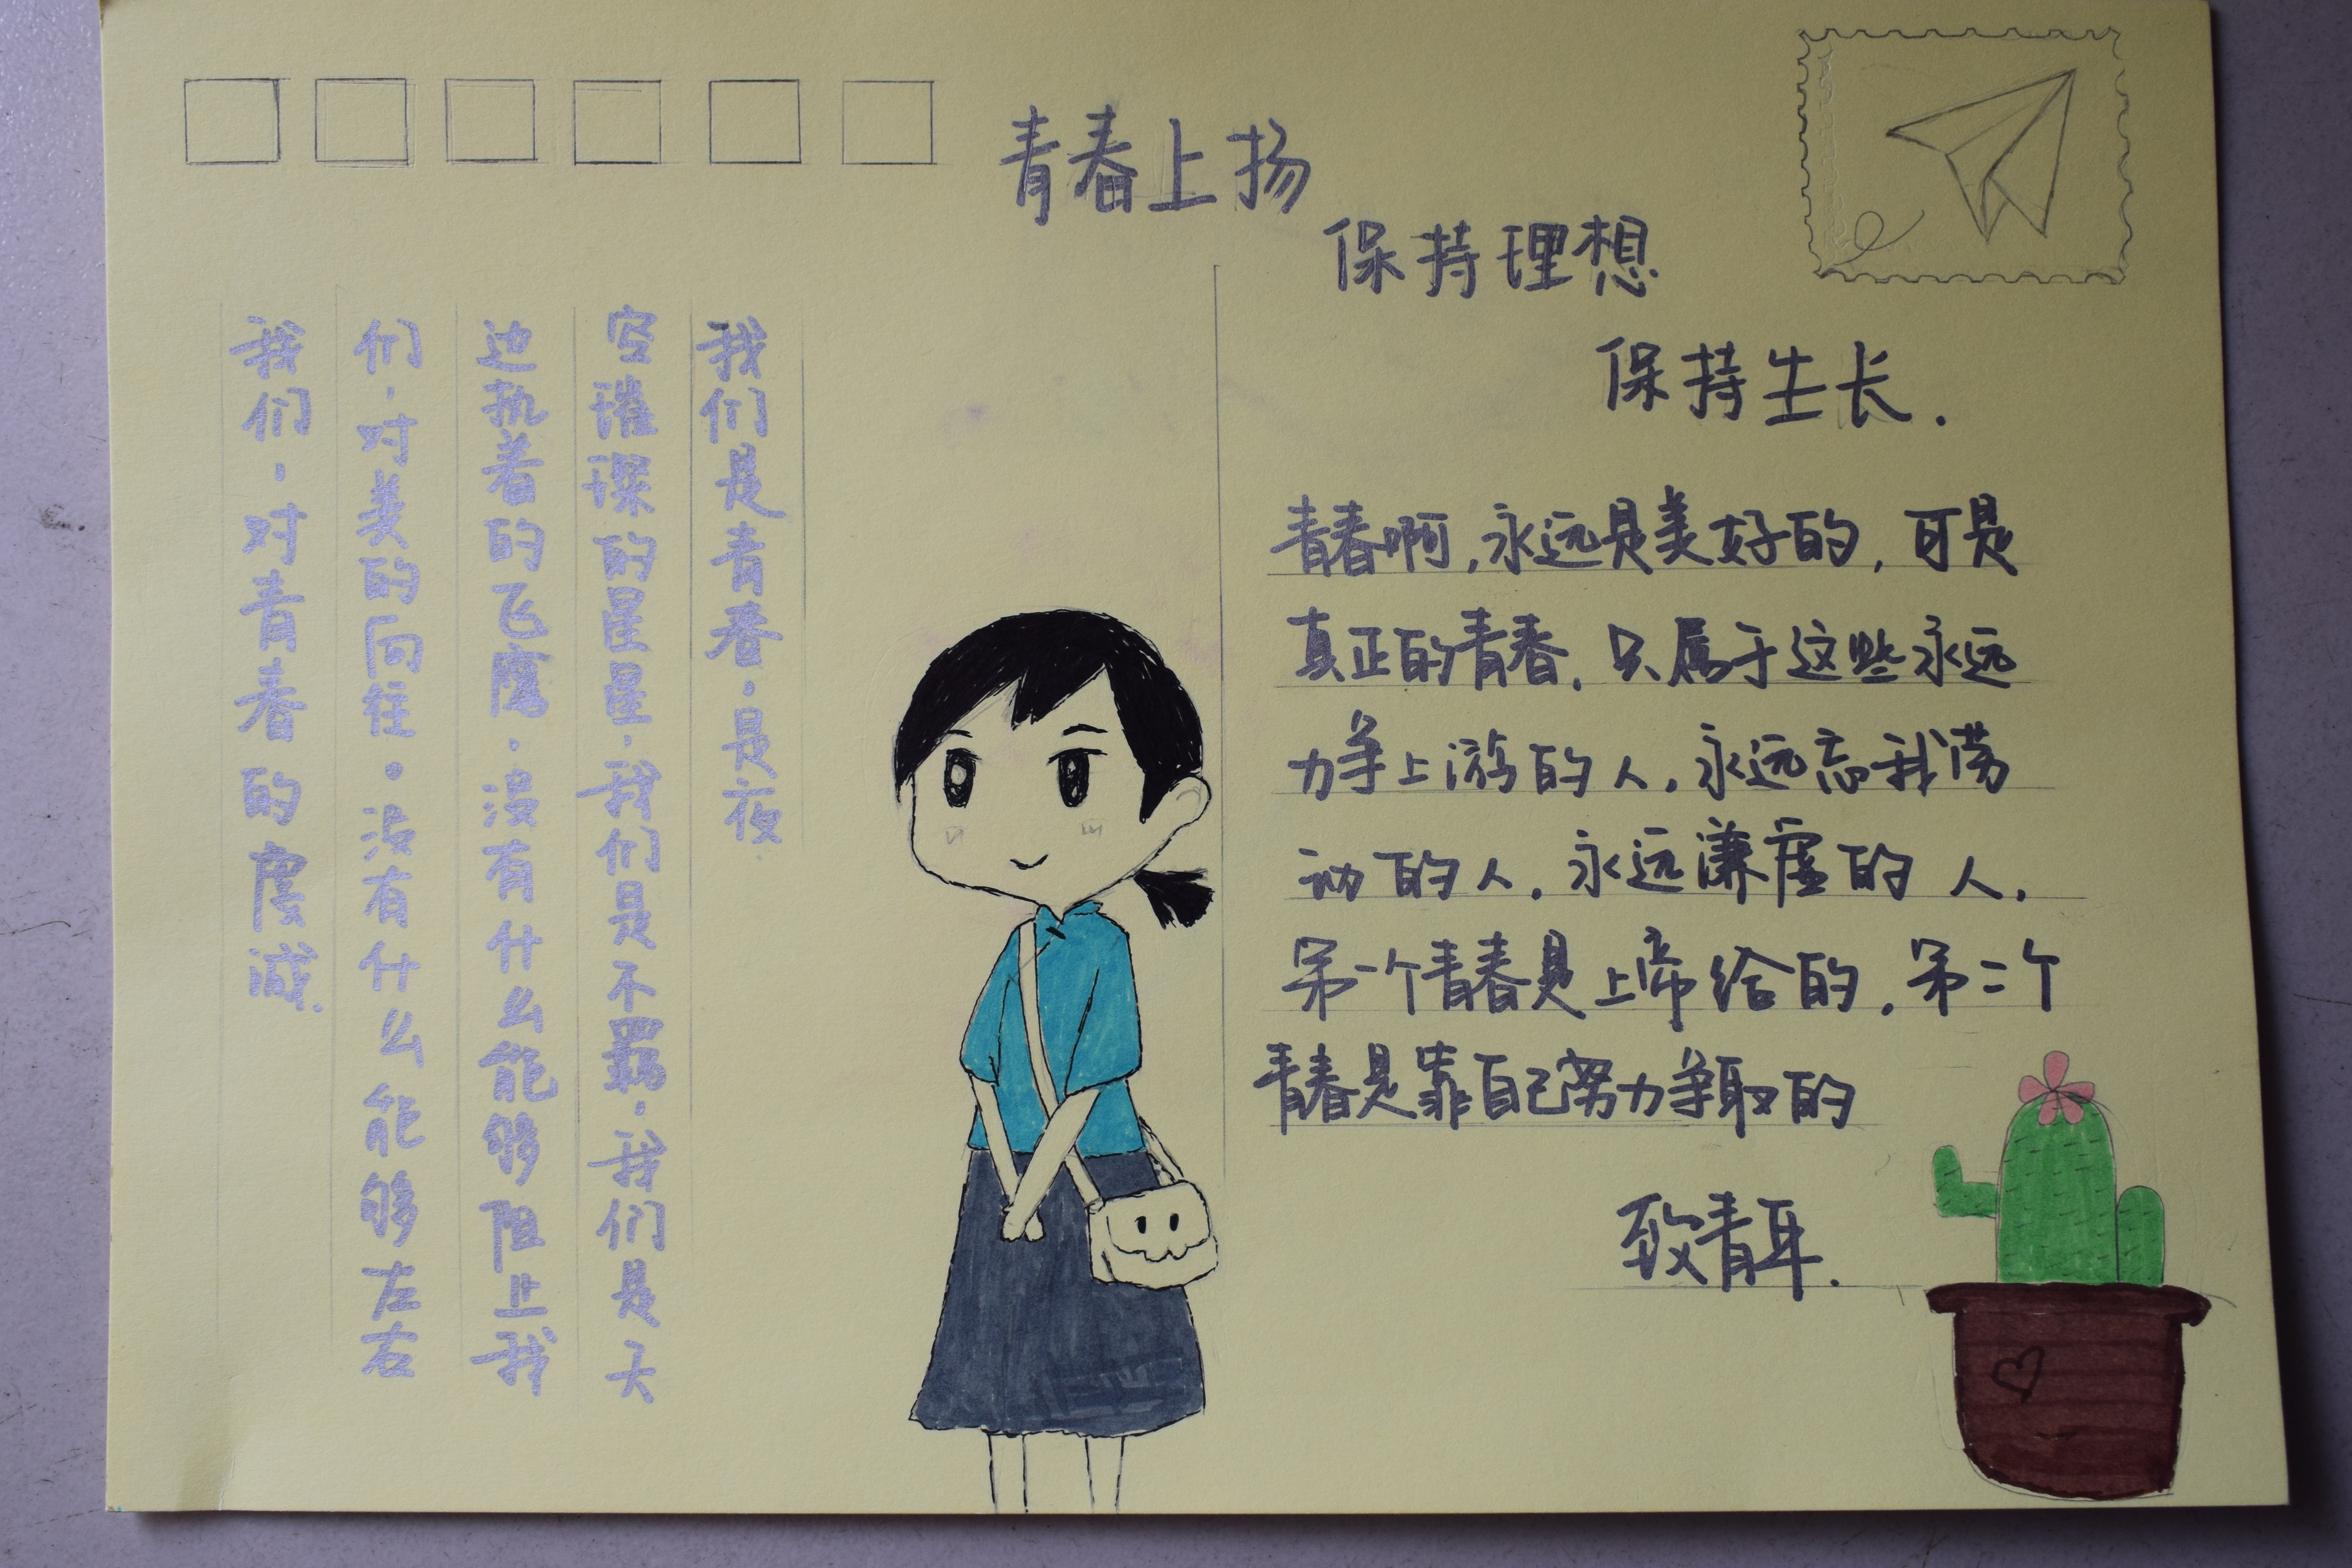 青春上扬
保持理想
保持生长.
青春啊,永远是美好的,可是
真正的青春,只属于这些永远
力争上游的人,永远忘我劳
动的人,永远谦虚的人,
第一个青春是上帝给的,第二个
青春是靠自己努力争取的
致青年.
我们是青春,是夜
空璀璨的星星,我们是不羁,我们是天
边执着的飞鹰,没有什么能够阻止我
们,对美的向往.没有什么能够左右
我们,对青春的虔诚.